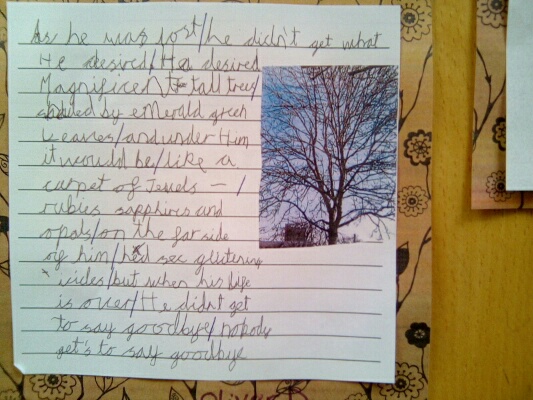 As he was lost/he didn't get what
He desired/He desired
Magnificent tall trees/
by emerald green
Leaves/and under Him
it would be/like a
carpet of Jewels — /
rubies sapphires and
opals/on the far side
of him/he'd see glistening
icicles/but when his life
is over/He didnt get
to say goodbye/nobody
get's to say goodbye
Oliver